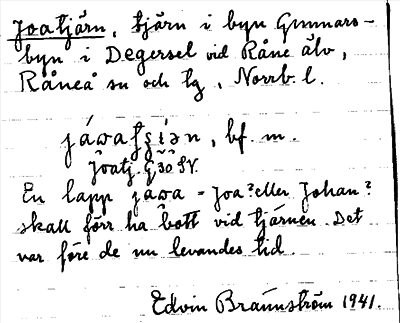 Joatjärn, tjärn i byn Gunnars-
byn i Degersel vid Råne älv,
Råneå sn och tg, Norrb. l.
bf. m.
Joatj. G30 SV.
En lapp jáwa = Joa? eller Johan?
skall förr ha bott vid tjärnen. Det
var före de nu levandes tid.
Edvin Brännström 1941.